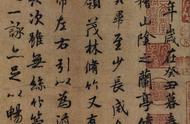 年歲在癸丑暮春
稽山陰之蘭亭
畢至少長咸
領茂林脩竹又
帶左右引以為
次雖無絲竹
一詠亦足以暢